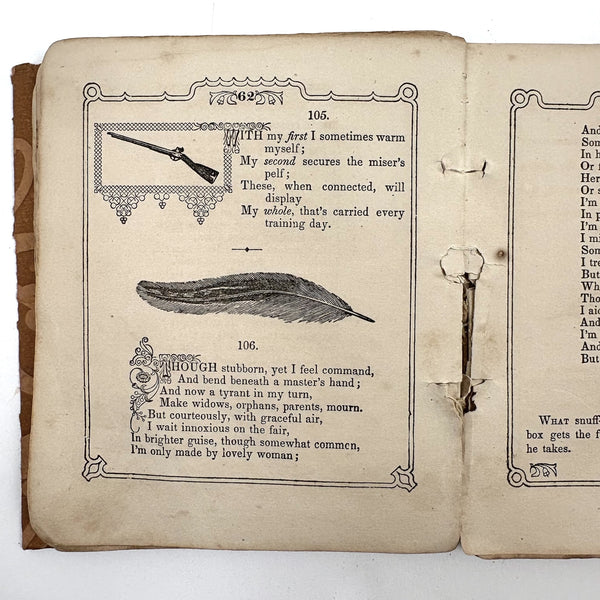 62
105.
WITH my first I sometimes warm
myself;
My second secures the miser's
pelf;
These, when connected, will
display
My whole, that's carried every
training day.
106.
THOUGH stubborn, yet I feel command,
And bend beneath a master's hand;
And now a tyrant in my turn,
Make widows, orphans, parents, mourn.
But courteously, with graceful air,
I wait innoxious on the fair,
In brighter guise, though somewhat common,
I'm only made by lovely woman;
And
Som
In h
Or
Her
Or s
I'm
In p
I'm
I mi
I tre
But
Wh
Tho
I aid
And
I'm
And
But
WHAT snuff-
box gets the f
he takes.